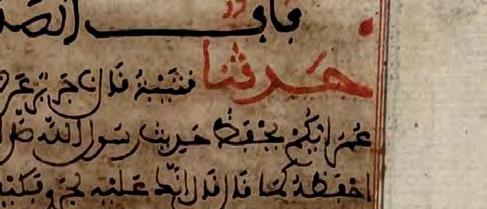 باب الصلا
حدثنا قتيبة قال نا جرير عن
عمر ايكم يحفظ حديث رسول الله صلى
احفظه كما قال قال انك عليه لجرى فكيف